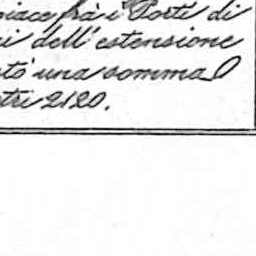 piace frà i Porti di
ei dell'estensione
stò una somma
tri 2120.